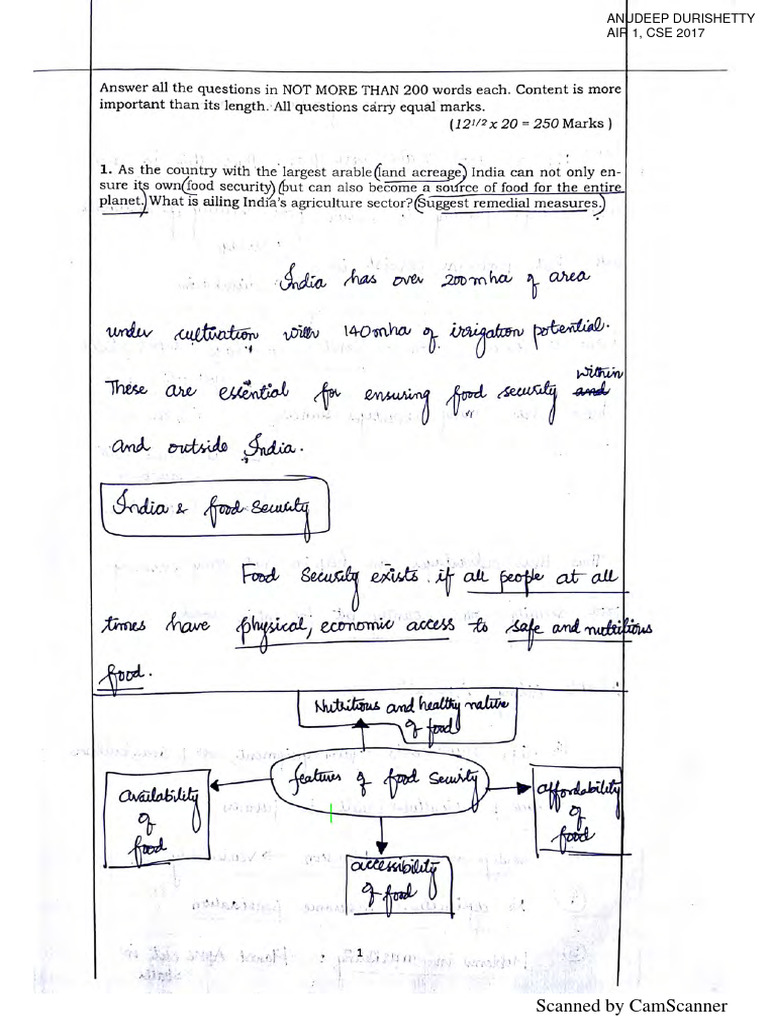 ANUDEEP DURISHETTY
AIR 1, CSE 2017
Answer all the questions in NOT MORE THAN 200 words each. Content is more
important than its length. All questions carry equal marks.
(12 1/2 x 20 = 250 Marks )
1. As the country with the largest arable (land acreage) India can not only en-
sure its own (food security) (but can also become a source of food for the entire
planet.) What is ailing India's agriculture sector? (Suggest remedial measures.)
India has over 200 mha of area
under cultivation with 140 mha of irrigation potential.
These are essential for ensuring food security and within
and outside India.
India & food security
Food Security exists if all people at all
times have physical, economic access to safe and nutritious
food.
Nutritious and healthy native
of food
features of food security
availability
of
food
affordability
of
food
accessibility
of food
1
Scanned by CamScanner